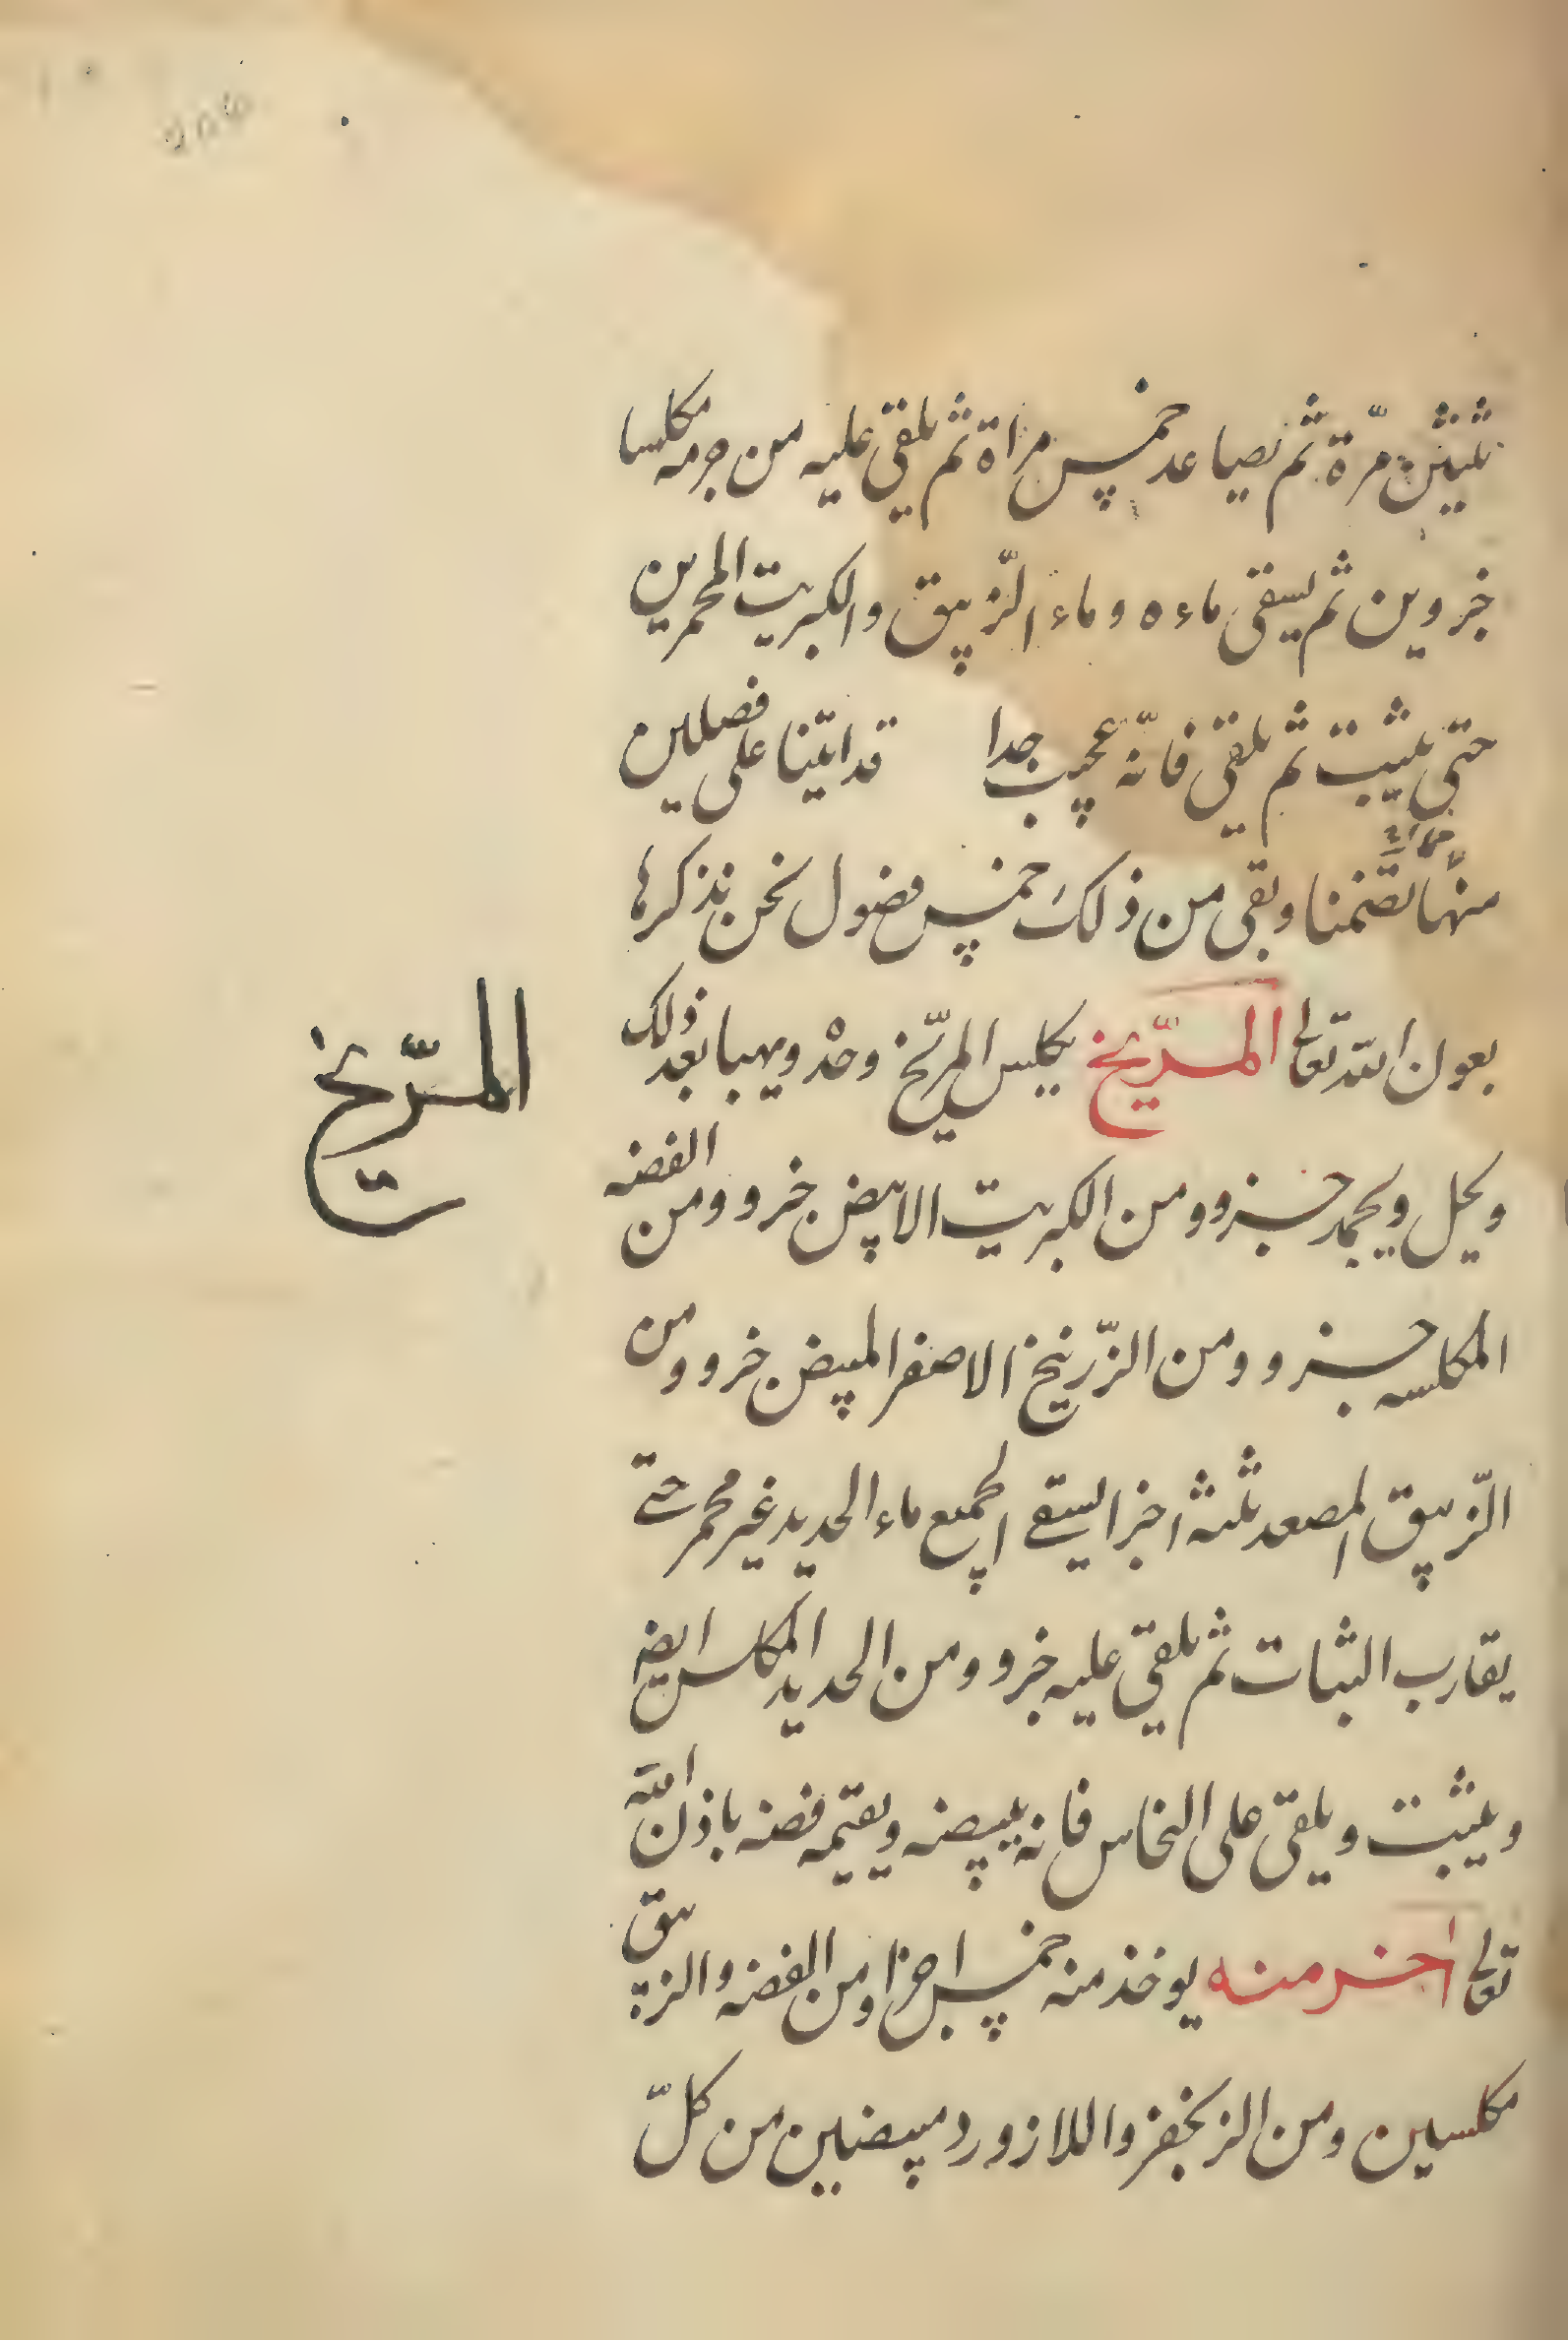 ثلثين مرّة ثم يصاعد خمس مراة ثم يلقى عليه من جرمه مكلسا
جزوين ثم يسقى ماءه وماء الزّيبق والكبريت المحمرين
حتى يثبت ثم يلقى فانّه عجيب جدا قد اتينا على فصلين
منها وبقى من ذلك خمس فصول نحن نذكرها
بعون الله تعالى المرّيخ يكلس المرّيخ وحده ويهبا بعد ذلك
ويحل ويجمد جزو ومن الكبريت الابيض جزو ومن الفضه
المكلسه جزو ومن الزّرنيخ الاصفر المبيض جزو ومن
الزّيبق المصعد ثلثة اجزا يسقى الجميع ماء الحديد غير محمر حتى
يقارب الثبات ثم يلقى عليه جزو ومن الحديد المكلس ايضا
ويثبت ويلقى على النحاس فانه يبيضه ويقيمه فضه باذن الله
تعالى اخر منه يوخذ منه خمس اجزا ومن الفضه والزيبق
مكلسين ومن الزنجفر واللازورد مبيضين من كلّ
المرّيخ